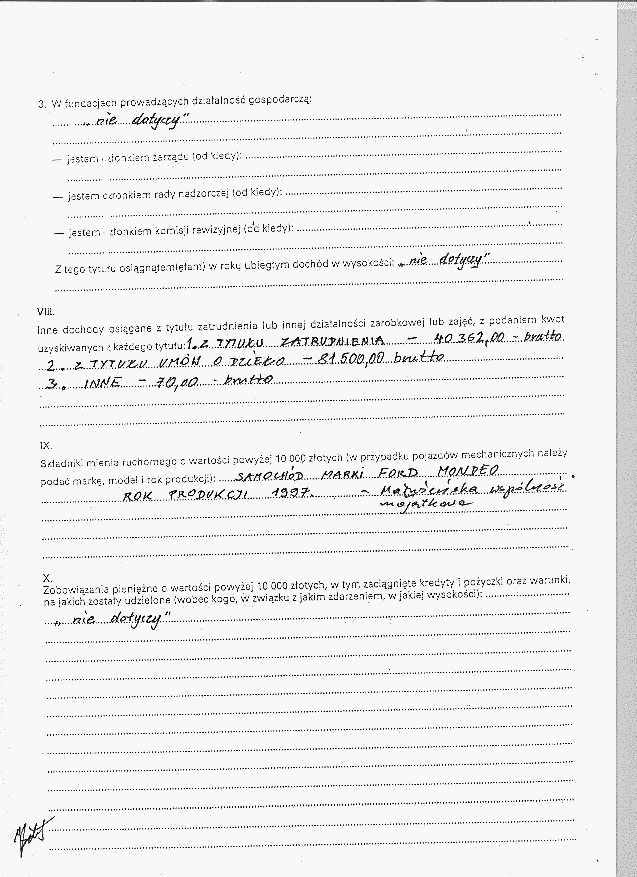 3. W fundacjach prowadzących działalność gospodarczą:
„nie dotyczy"
— jestem członkiem zarządu (od kiedy):
— jestem członkiem rady nadzorczej (od kiedy):
— jestem członkiem komisji rewizyjnej (od kiedy):
Z tego tytułu osiągnąłem(ęłam) w roku ubiegłym dochód w wysokości: „nie dotyczy"
VIII.
Inne dochody osiągane z tytułu zatrudnienia lub innej działalności zarobkowej lub zajęć, z podaniem kwot
uzyskiwanych z każdego tytułu: 1. Z TYTUŁU ZATRUDNIENIA – 40 362,00 - brutto
2. Z TYTUŁU UMÓW O DZIEŁO – 81 500,00 brutto
3. INNE – 70,00 - brutto
IX.
Składniki mienia ruchomego o wartości powyżej 10 000 złotych (w przypadku pojazdów mechanicznych należy
podać markę, model i rok produkcji): SAMOCHÓD MARKI FORD MONDEO
ROK PRODUKCJI 1997. – Małżeńska wspólność
majątkowa
X.
Zobowiązania pieniężne o wartości powyżej 10 000 złotych, w tym zaciągnięte kredyty i pożyczki oraz warunki,
na jakich zostały udzielone (wobec kogo, w związku z jakim zdarzeniem, w jakiej wysokości):
„nie dotyczy"